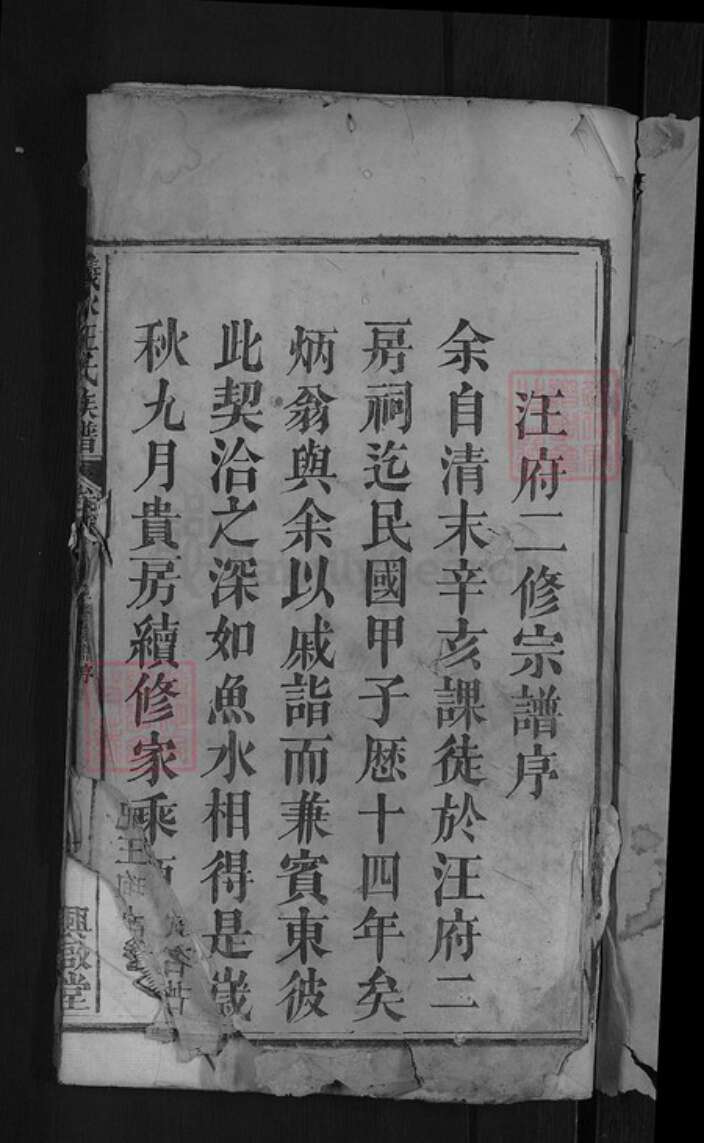 汪府二修宗譜序
余自清末辛亥課徒於汪府二
房祠迄民國甲子歷十四年矣
炳翁與余以戚誼而兼賓東彼
此契洽之深如魚水相得是歲
秋九月貴房續修家乘
汪氏族譜
興敬堂